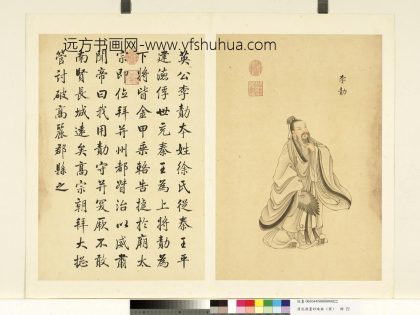 远方书画网-www.yfshuhua.com
李勣
英公李勣本姓徐氏從秦王平
建德俘世充秦王為上將勣為
下將皆金甲乘輅告捷於廟太
宗即位拜并州都督治以威肅
聞帝曰我用勣守并突厥不敢
南賢長城遠矣高宗朝拜大總
管討破高麗郡縣之